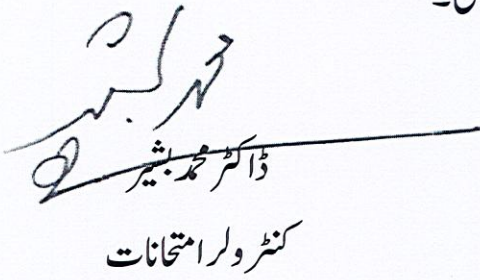 محمد بشیر
ڈاکٹر محمد بشیر
کنٹرولر امتحانات